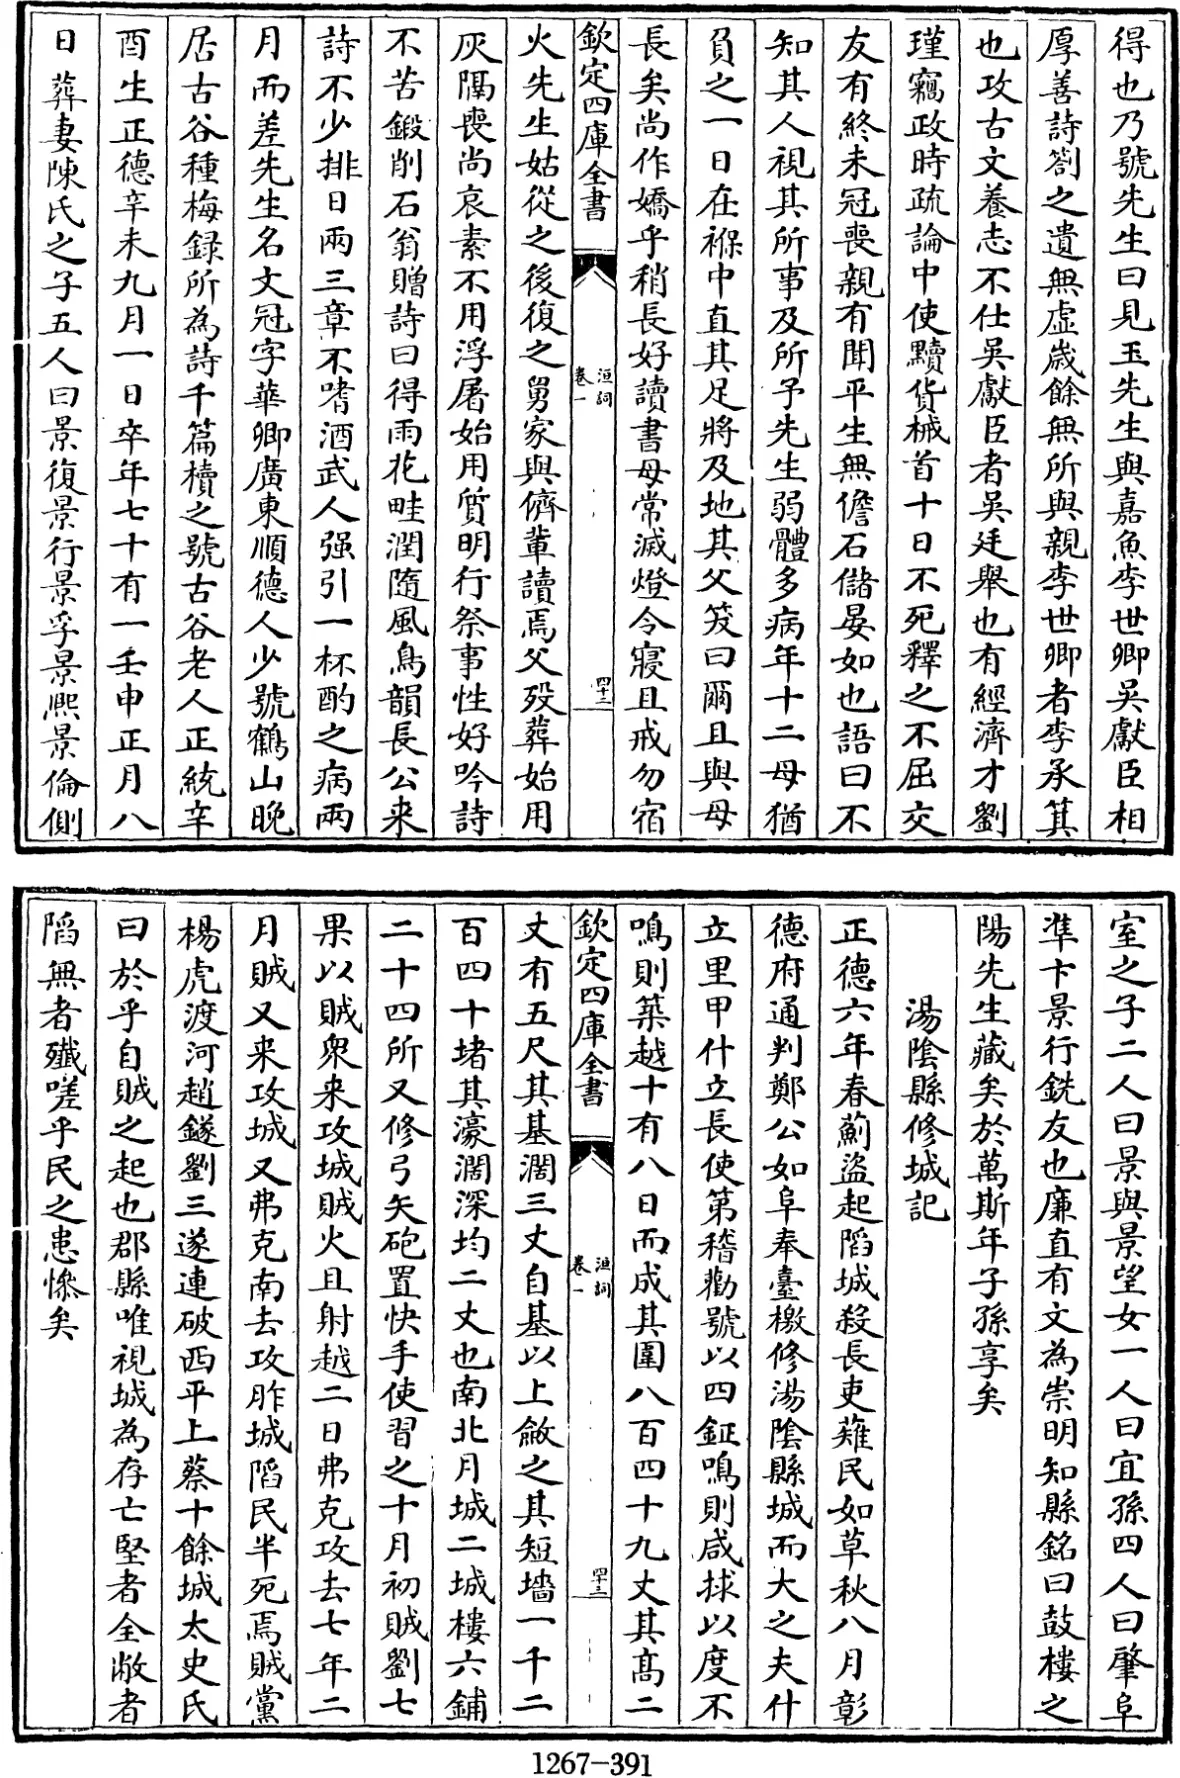 得也乃號先生曰見玉先生與嘉魚李世卿吳獻臣相
厚善詩劄之遺無虛歲餘無所與親李世卿者李承箕
也攻古文養志不仕吳獻臣者吳廷舉也有經濟才劉
瑾竊政時疏論中使黷貨械首十日不死釋之不屈交
友有終未冠喪親有聞平生無儋石儲晏如也語曰不
知其人視其所事及所予先生弱體多病年十二母猶
負之一日在褓中直其足將及地其父笑曰爾且與母
長矣尚作嬌乎稍長好讀書母常滅燈令寢且戒勿宿
欽定四庫全書
洹詞
卷一
四十二
火先生姑從之後復之舅家與儕輩讀焉父歿葬始用
灰隔喪尚哀素不用浮屠始用質明行祭事性好吟詩
不苦鍛削石翁贈詩曰得雨花畦潤隨風鳥韻長公來
詩不少排日兩三章不嗜酒武人强引一杯酌之病兩
月而差先生名文冠字華卿廣東順德人少號鶴山晚
居古谷種梅録所為詩千篇櫝之號古谷老人正統辛
酉生正德辛未九月一日卒年七十有一壬申正月八
日葬妻陳氏之子五人曰景復景行景孚景熙景倫側
室之子二人曰景與景望女一人曰宜孫四人曰肇阜
凖卞景行銑友也廉直有文為崇明知縣銘曰鼓樓之
陽先生藏矣於萬斯年子孫享矣
湯隂縣修城記
正德六年春薊盜起陷城殺長吏薙民如草秋八月彰
德府通判鄭公如阜奉臺檄修湯隂縣城而大之夫什
立里甲什立長使第稽勸號以四鉦鳴則咸捄以度不
鳴則築越十有八日而成其圍八百四十九丈其髙二
欽定四庫全書
洹詞
卷一
四十三
丈有五尺其基濶三丈自基以上斂之其短墻一千二
百四十堵其濠濶深均二丈也南北月城二城樓六鋪
二十四所又修弓矢砲置快手使習之十月初賊劉七
果以賊衆來攻城賊火且射越二日弗克攻去七年二
月賊又来攻城又弗克南去攻胙城陷民半死焉賊黨
楊虎渡河趙鐩劉三遂連破西平上蔡十餘城太史氏
曰於乎自賊之起也郡縣唯視城為存亡堅者全敝者
陷無者殲嗟乎民之患慘矣
1267-391